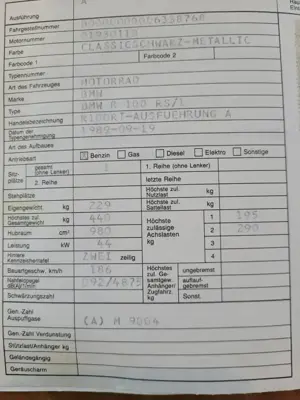 A
Ausführung
Fahrgestellnummer
Motornummer
Farbe CLASSICSCHWARZ-METALLIC
Farbcode 1 Farbcode 2
Typennummer
Art des Fahrzeuges MOTORRAD
Marke BMW
Type BMW R 100 RS/1
Handelsbezeichnung
Datum der Typengenehmigung 1989-09-19
Art des Aufbaues
Antriebsart Benzin Gas Diesel Elektro Sonstige
Sitzplätze gesamt (ohne Lenker) 1 1. Reihe (ohne Lenker)
2. Reihe letzte Reihe
Stehplätze Höchste zul. Nutzlast kg
Eigengewicht kg 229 Höchste zul. Sattellast kg
Höchstes zul. Gesamtgewicht kg 440 Höchste zulässige Achslasten kg 1 195
Hubraum cm³ 980 2 290
Leistung kW 44 3
Hintere Kennzeichentafel ZWEI zeilig 4
Bauartgeschw. km/h 186 Höchstes zul. Gesamtgew. Anhänger/Zugfahrz. kg ungebremst
Nahfeldpegel dB(A)/1/min 092/4875 auflaufgebremst
Schwärzungszahl Sonst.
Gen.-Zahl Auspuffgase (A) M 9004
Gen.-Zahl Verdunstung
Stützlast/Anhänger kg
Geländegängig
Geräuscharm